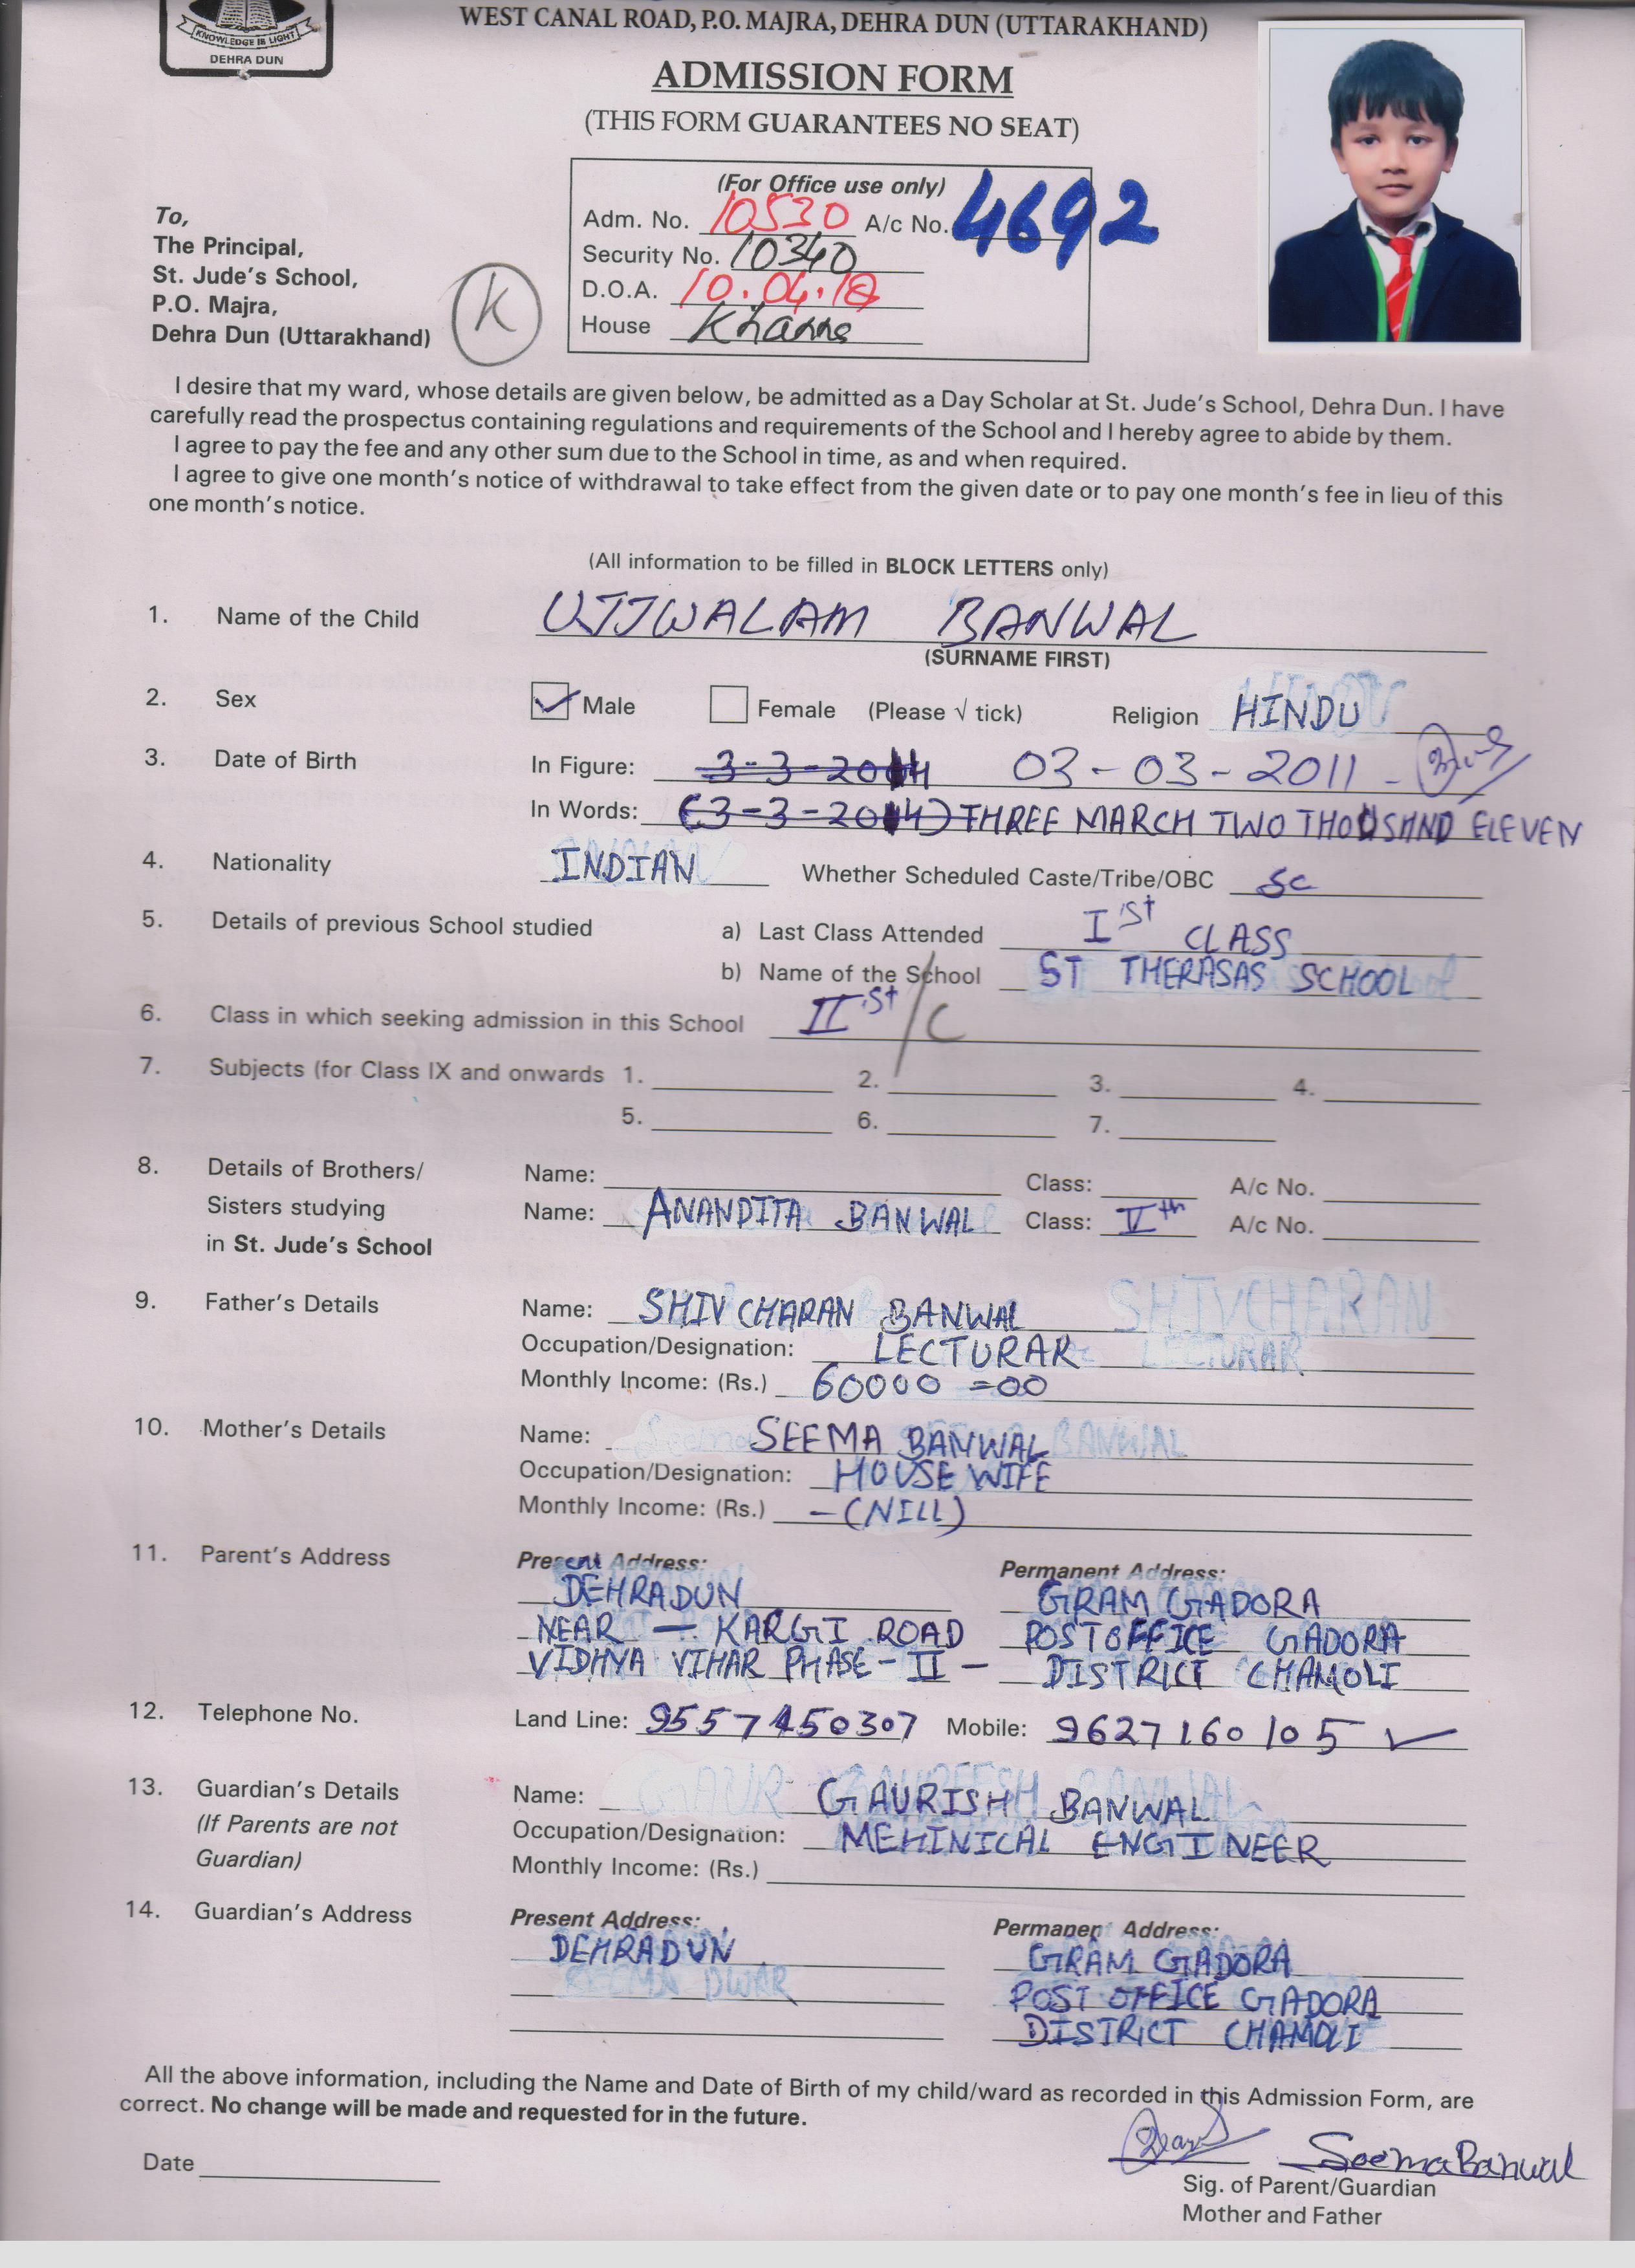 KNOWLEDGE IS LIGHT
DEHRA DUN
WEST CANAL ROAD, P.O. MAJRA, DEHRA DUN (UTTARAKHAND)
ADMISSION FORM
(THIS FORM GUARANTEES NO SEAT)
(For Office use only)
Adm. No. 10530 A/c No. 4692
Security No. 10340
D.O.A. 10.04.18
House Khanna
To,
The Principal,
St. Jude's School,
P.O. Majra,
Dehra Dun (Uttarakhand)
K
I desire that my ward, whose details are given below, be admitted as a Day Scholar at St. Jude's School, Dehra Dun. I have
carefully read the prospectus containing regulations and requirements of the School and I hereby agree to abide by them.
I agree to pay the fee and any other sum due to the School in time, as and when required.
I agree to give one month's notice of withdrawal to take effect from the given date or to pay one month's fee in lieu of this
one month's notice.
(All information to be filled in BLOCK LETTERS only)
1. Name of the Child UJJWALAM BANWAL
(SURNAME FIRST)
2. Sex Male Female (Please √ tick) Religion HINDU
3. Date of Birth In Figure: 3-3-2014 03-03-2011 -
In Words: (3-3-2014) THREE MARCH TWO THOUSAND ELEVEN
4. Nationality INDIAN Whether Scheduled Caste/Tribe/OBC SC
5. Details of previous School studied a) Last Class Attended Ist CLASS
b) Name of the School ST THERASAS SCHOOL
6. Class in which seeking admission in this School IIst/C
7. Subjects (for Class IX and onwards 1. 2. 3. 4.
5. 6. 7.
8. Details of Brothers/ Name: Class: A/c No.
Sisters studying Name: ANANDITA BANWAL Class: Vth A/c No.
in St. Jude's School
9. Father's Details Name: SHIV CHARAN BANWAL SHIVCHARAN
Occupation/Designation: LECTURAR LECTURAR
Monthly Income: (Rs.) 60000 =00
10. Mother's Details Name: Seema SEEMA BANWAL BANWAL
Occupation/Designation: HOUSE WIFE
Monthly Income: (Rs.) -(NILL)
11. Parent's Address Present Address: Permanent Address:
DEHRADUN GRAM GADORA
NEAR - KARGI ROAD POST OFFICE GADORA
VIDHYA VIHAR PHASE-II - DISTRICT CHAMOLI
12. Telephone No. Land Line: 9557450307 Mobile: 9627160105
13. Guardian's Details Name: GAURISH BANWAL
(If Parents are not Occupation/Designation: MEHINICAL ENGINEER
Guardian) Monthly Income: (Rs.)
14. Guardian's Address Present Address: Permanent Address:
DEHRADUN GRAM GADORA
SEEMA DWAR POST OFFICE GADORA
DISTRICT CHAMOLI
All the above information, including the Name and Date of Birth of my child/ward as recorded in this Admission Form, are
correct. No change will be made and requested for in the future.
Date
Seema Banwal
Sig. of Parent/Guardian
Mother and Father